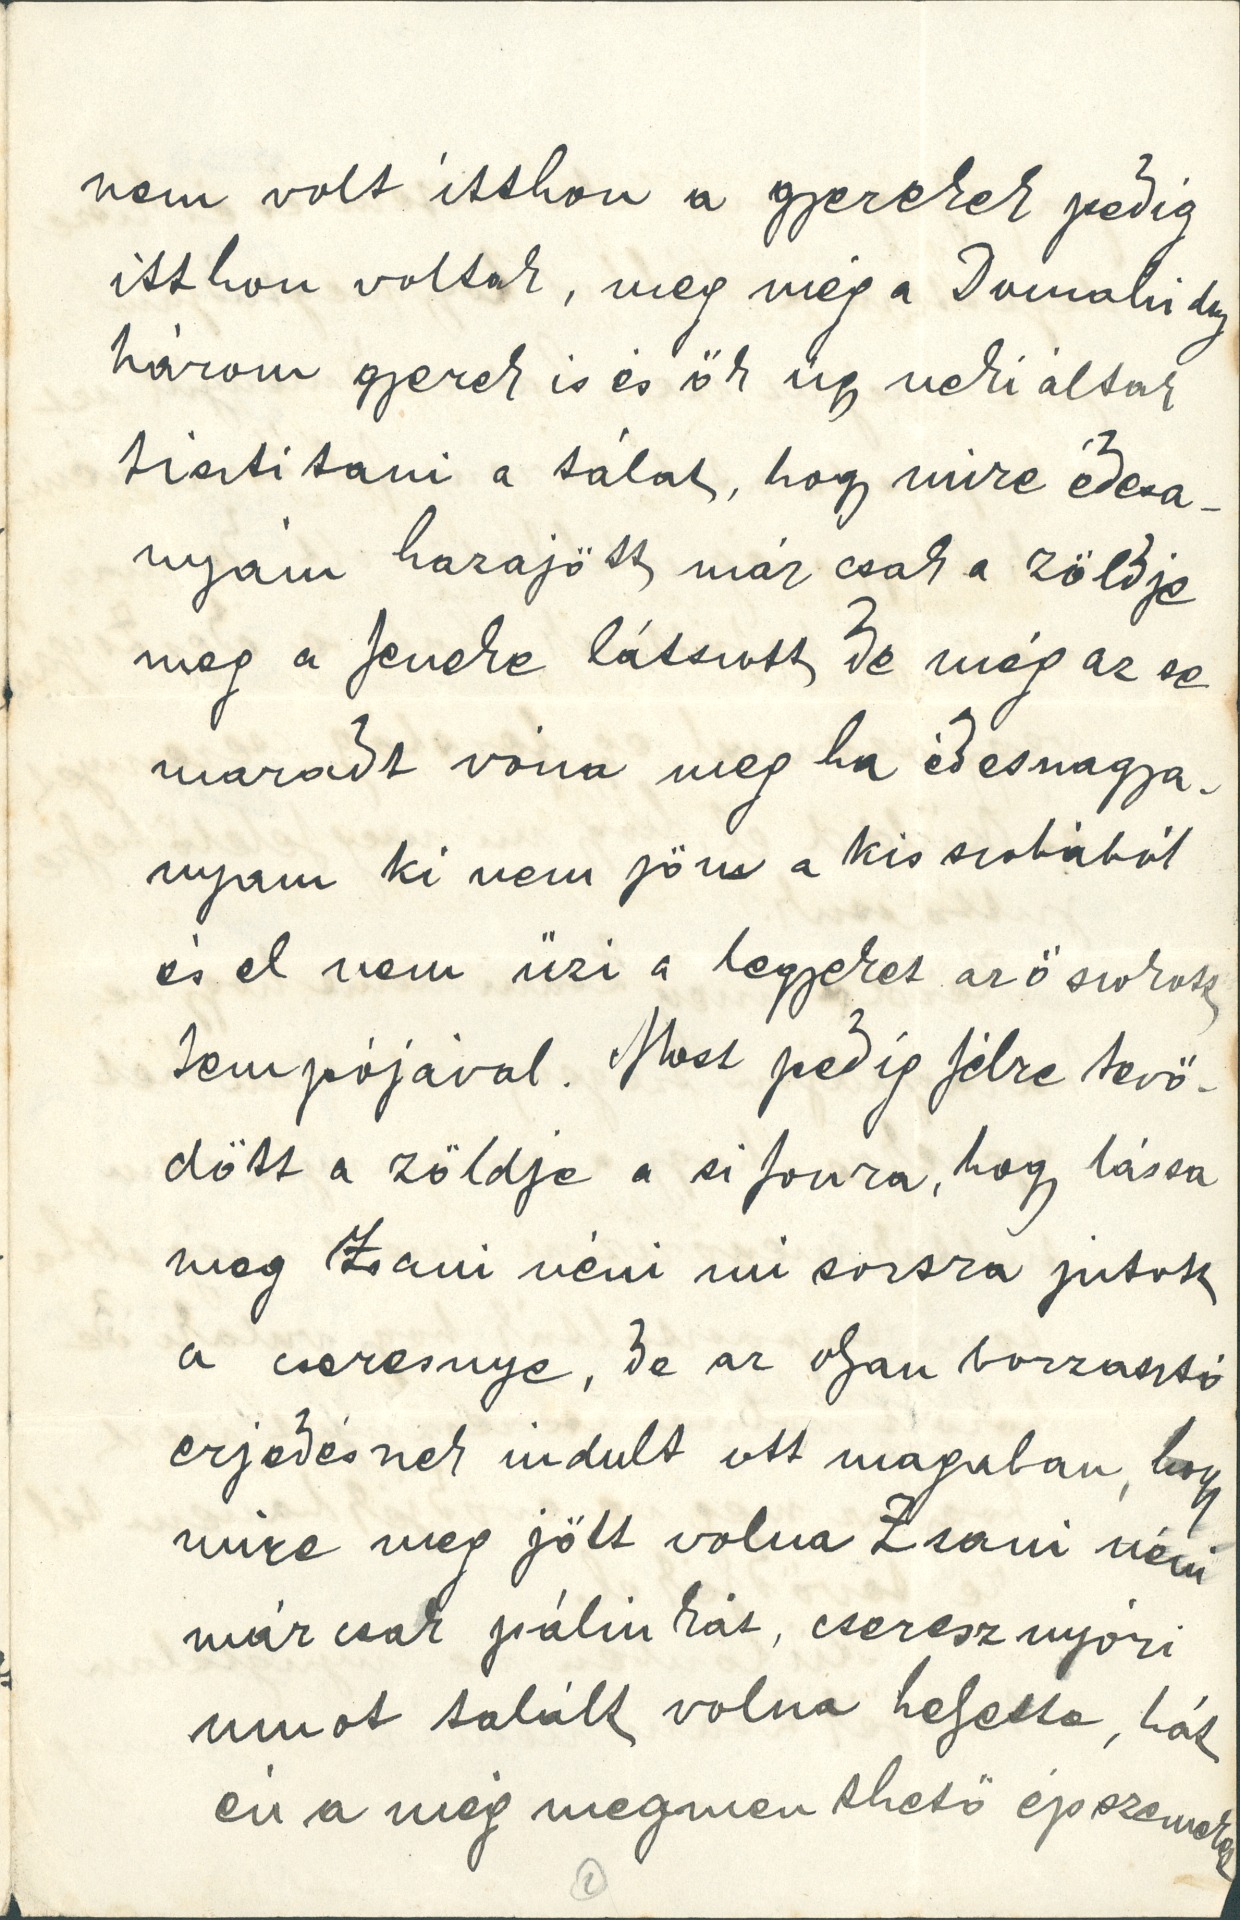 nem volt itthon a gyerekek pedig
itthon voltak, meg még a Dumahidy
három gyerek is és ők úgy neki áltak
tisztitani a tálat, hogy mire édesa-
nyám hazajött, már csak a zöldje
meg a feneke látszott, de még az se
maradt vóna meg ha édesnagya-
nyam ki nem jön a kis szobából
és el nem űzi a legyeket az ő szokott
tempójával. Most pedig félre tevő-
dött a zöldje a sifonra, hogy lássa
meg Zsani néni mi sorsra jutott
a cseresnye, de az olyan borzasztó
erjedésnek indult ott magában, hogy
mire meg jött volna Zsani néni
már csak pálinkát, cseresznyóri
umot talált volna helyette, hát
én a még megmenthető épszemeket
1